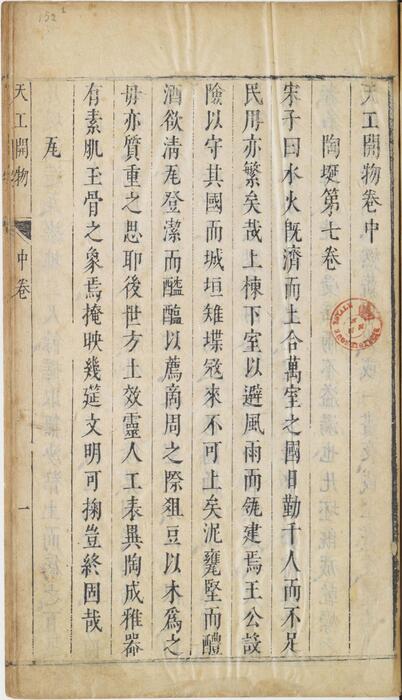 天工開物卷中
陶埏第七卷
宋子曰水火旣濟而土合萬室之國日勤千人而不足
民用亦繁矣哉上棟下室以避風雨而瓴建焉王公設
險以守其國而城垣雉堞寇來不可上矣泥甕堅而醴
酒欲清瓦登潔而醯醢以薦商周之際俎豆以木爲之
毋亦質重之思耶後世方土效靈人工表異陶成雅器
有素肌玉骨之象焉掩映幾筵文明可掬豈終固哉
瓦
天工開物
中卷
一
152